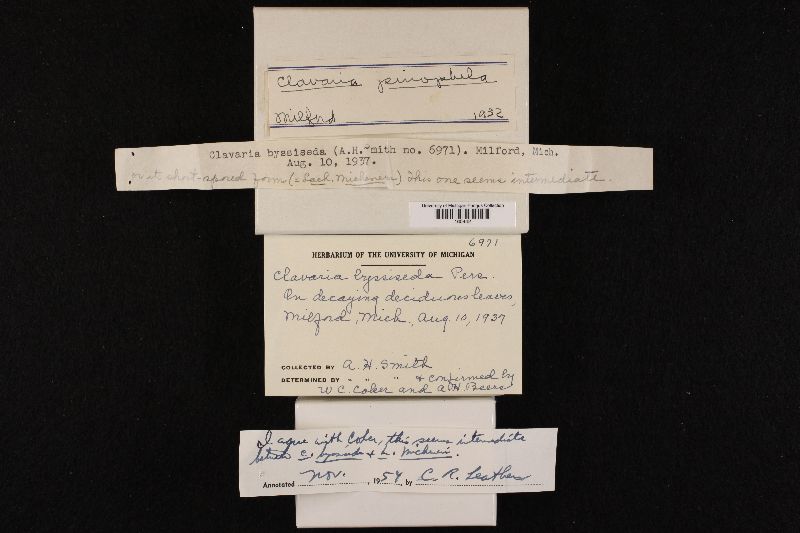 Clavaria pinophila
Milford 1932
Clavaria byssiseda (A.H.Smith no. 6971). Milford, Mich.
Aug. 10, 1937.
or it short-spored form (= Lach. Micheneri) This one seems intermediate.
University of Michigan Fungus Collection
6971
HERBARIUM OF THE UNIVERSITY OF MICHIGAN
Clavaria byssiseda Pers.
On decaying deciduous leaves,
Milford, Mich., Aug. 10, 1937
COLLECTED BY A. H. Smith
DETERMINED BY " " " & confirmed by
W C. Coker and A.H. Beers
I agree with Coker, this seems intermediate
between C. byssiseda & L. Micheneri.
Nov.
Annotated , 1954, by C. R. Leathers